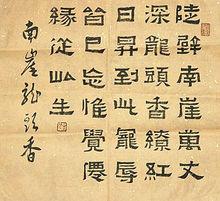 陡辟南崖萬丈
深龍頭香繚紅
日昇到此寵辱
皆已忘惟覺塵
緣從此生
南崖龍頭香